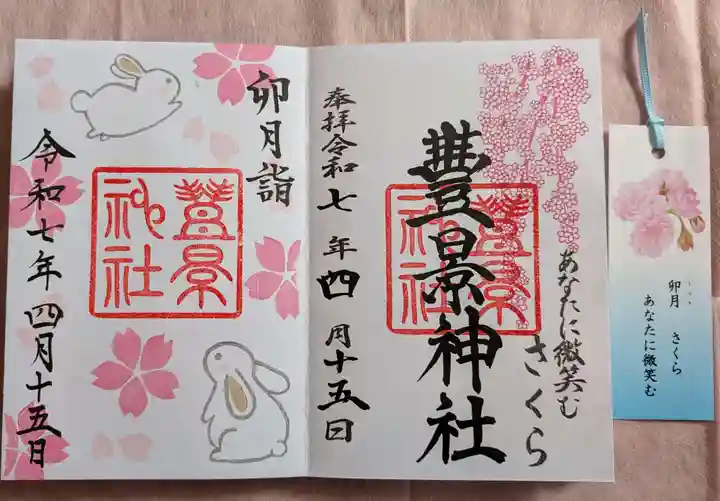 奉拝令和七年四月十五日
豊景神社
豊景神社
さくら
あなたに微笑む
卯月詣
豊景神社
令和七年四月十五日
卯月 さくら
あなたに微笑む